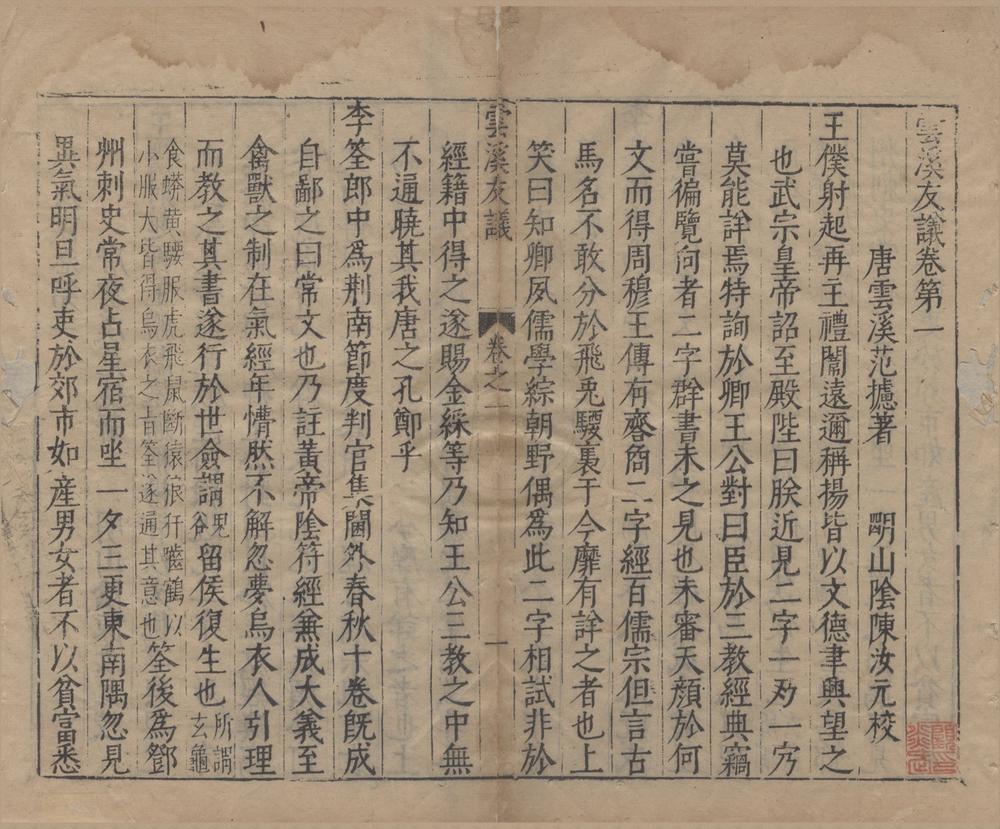 雲溪友議卷第一
唐雲溪范攄著　明山陰陳汝元校
王僕射起再主禮闈遠邇稱揚皆以文德聿興望之
也武宗皇帝詔至殿陛曰朕近見二字一刕一㝋
莫能詳焉特詢於卿王公對曰臣於三教經典竊
嘗徧覽向者二字群書未之見也未審天顔於何
文而得周穆王傳有㓒㝋二字經百儒宗但言古
馬名不敢分於飛兎騕褭于今靡有詳之者也上
笑曰知卿夙儒學綜朝野偶為此二字相試非於
雲溪友議　卷之一　一
經籍中得之遂賜金綵等乃知王公三教之中無
不通曉其我唐之孔鄭乎
李筌郎中爲荆南節度判官集閫外春秋十卷旣成
自鄙之曰常文也乃註黃帝陰符經兼成大義至
禽獸之制在氣經年懵然不解忽夢烏衣人引理
而教之其書遂行於世僉謂鬼谷留侯復生也所謂玄龜
食蟒黄腰服虎飛鼠斷猿狼犴嚙鶴以
小服大皆得烏衣之旨筌遂通其意也筌後為鄧
州刺史常夜占星宿而坐一夕三更東南隅忽見
異氣明旦呼吏於郊市如產男女者不以貧富悉